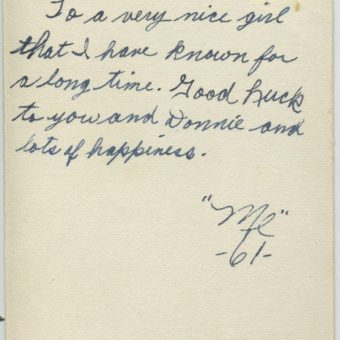 To a very nice girl
that I have known for
a long time. Good Luck
to you and Donnie and
lots of happiness.
"Me"
-61-